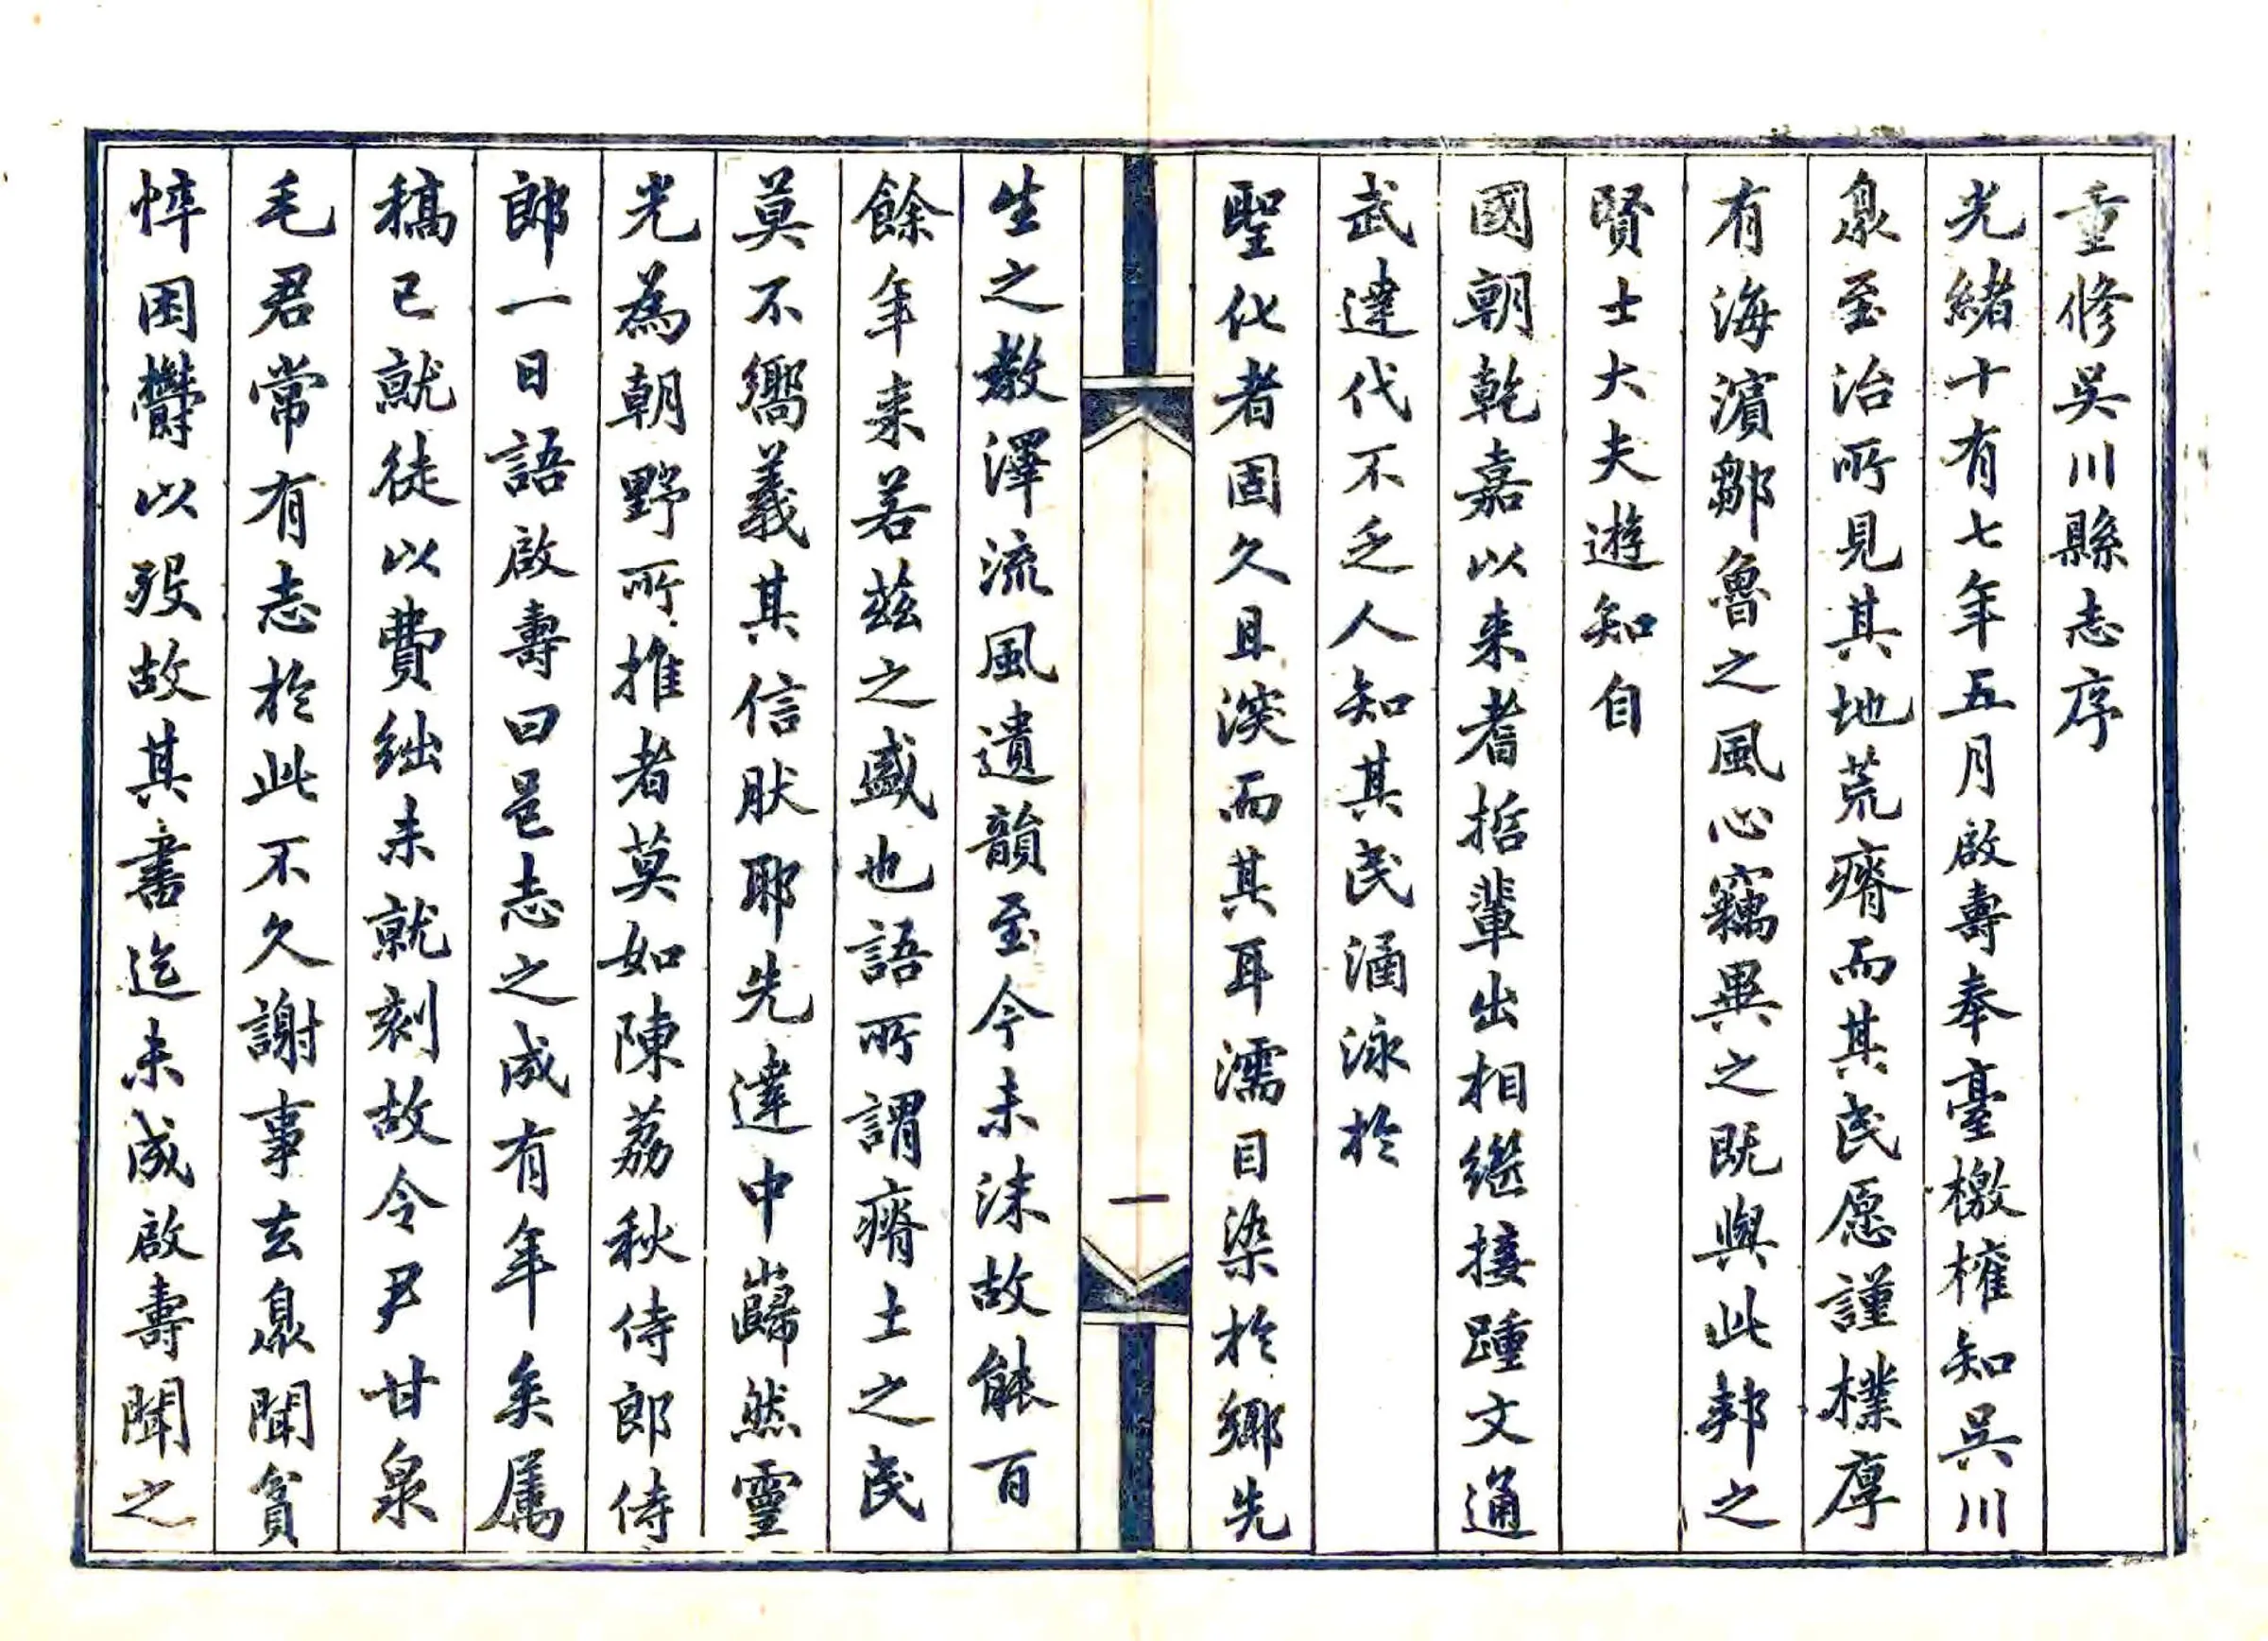 重修吳川縣志序
光緒十有七年五月啟壽奉臺檄権知吳川
梟至治所見其地荒瘠而其民愿謹樸厚
有海濱鄒魯之風心竊異之既與此邦之
賢士大夫遊知自
國朝乾嘉以来耆哲輩出相繼接踵文通
武達代不乏人知其民涵泳於
聖化者固久且深而其耳濡目染於鄉先
生之教澤流風遺韻至今未沫故能百
餘年来若茲之盛也語所謂瘠土之民
莫不嚮義其信肰耶先達中巋然靈
光為朝野所推者莫如陳荔秋侍郎侍
郎一日語啟壽曰邑志之成有年矣属
稿已就徒以費絀未就刻故令尹甘泉
毛君常有志於此不久謝事去梟聞貧
悴困欝以歿故其書迄未成啟壽聞之
一